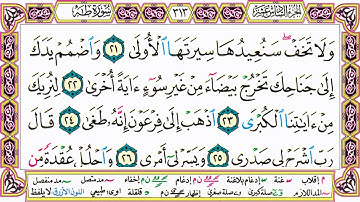 الجزء السادس عشر ٣١٣ سورة طه
وَلَا تَخَفْ سَنُعِيدُهَا سِيرَتَهَا الْأُولَىٰ ٢١ وَاضْمُمْ يَدَكَ
إِلَىٰ جَنَاحِكَ تَخْرُجْ بَيْضَاءَ مِنْ غَيْرِ سُوءٍ ءَايَةً أُخْرَىٰ ٢٢ لِنُرِيَكَ
مِنْ ءَايَٰتِنَا الْكُبْرَى ٢٣ اذْهَبْ إِلَىٰ فِرْعَوْنَ إِنَّهُ طَغَىٰ ٢٤ قَالَ
رَبِّ اشْرَحْ لِي صَدْرِي ٢٥ وَيَسِّرْ لِي أَمْرِي ٢٦ وَاحْلُلْ عُقْدَةً مِّن